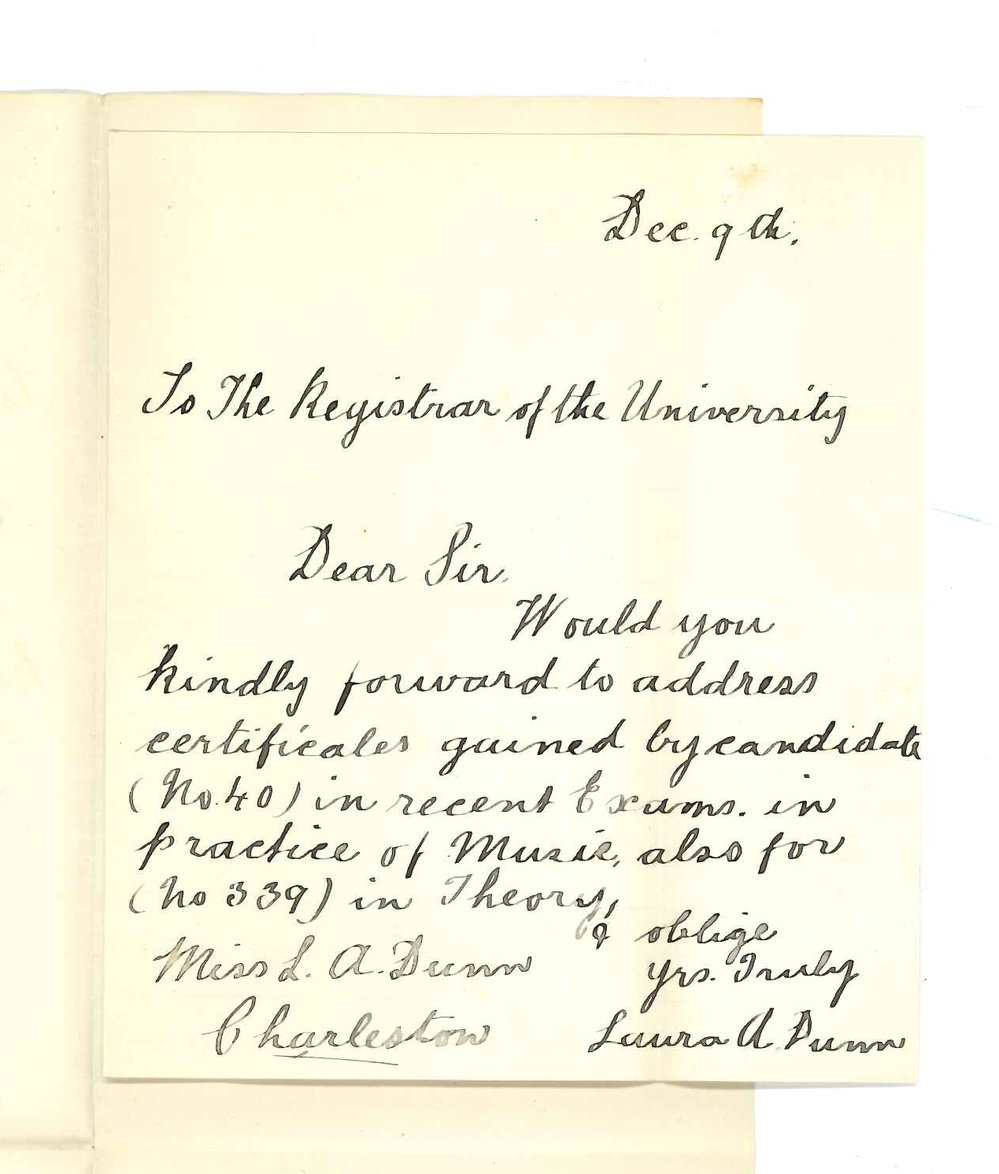 Dec. 9th.
To The Registrar of the University
Dear Sir,
Would you
kindly forward to address
certificates gained by candidate
(No. 40) in recent Exams. in
practice of Music, also for
(No 339) in Theory,
& oblige
Miss L. A. Dunn
Yrs. Truly
Charleston
Laura A. Dunn